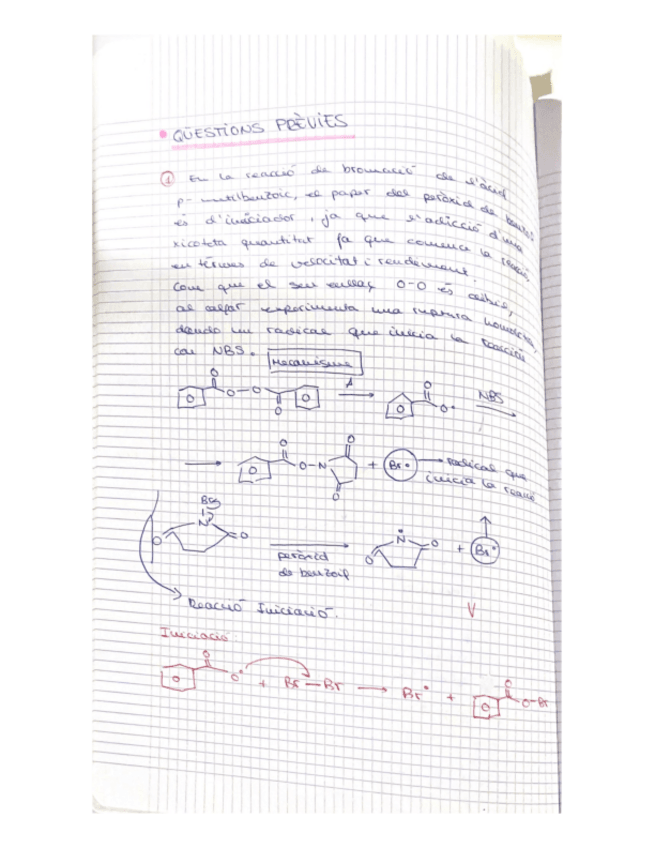 • QÜESTIONS PRÈVIES
① En la reacció de bromació de l'àcid
p-metilbenzoic, el paper del peròxid de benzoil
és d'iniciador, ja que l'adicció d'una
xicoteta quantitat fa que comença la reacció,
en termes de velocitat i rendiment.
Com que el seu enllaç O-O és
al calfar experimenta una ruptura homolítica,
donant un radical que inicia la reacción
con NBS. Mecanisme
O
O-O
O
Δ
O
O•
NBS
O
O-N
O
O
+ Br• radical que
inicia la reacció
Br
N
O
O
peròxid
de benzoil
N
O
O
+ Br•
Reacció Iniciació.
V
Iniciació
O
O•
+ Br—Br → Br• +
O
O-Br